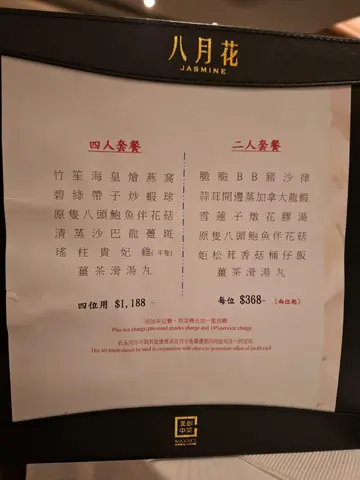 八月花
JASMINE
四人套餐
竹笙海皇燴燕窩
碧綠帶子炒蝦球
原隻八頭鮑魚伴花菇
清蒸沙巴龍躉斑
瑤柱貴妃雞(半隻)
薑茶滑湯丸
四位用 $1,188-
二人套餐
脆脆BB豬沙律
蒜茸開邊蒸加拿大龍蝦
雪蓮子燉花膠湯
原隻八頭鮑魚伴花菇
姬松茸香菇桶仔飯
薑茶滑湯丸
每位 $368- (兩位起)
Plus tea charge pre-meal snacks charge and 10% service charge
This set menu cannot be used in conjunction with others or promotion offers of credit card
美心中菜
MAXIM'S